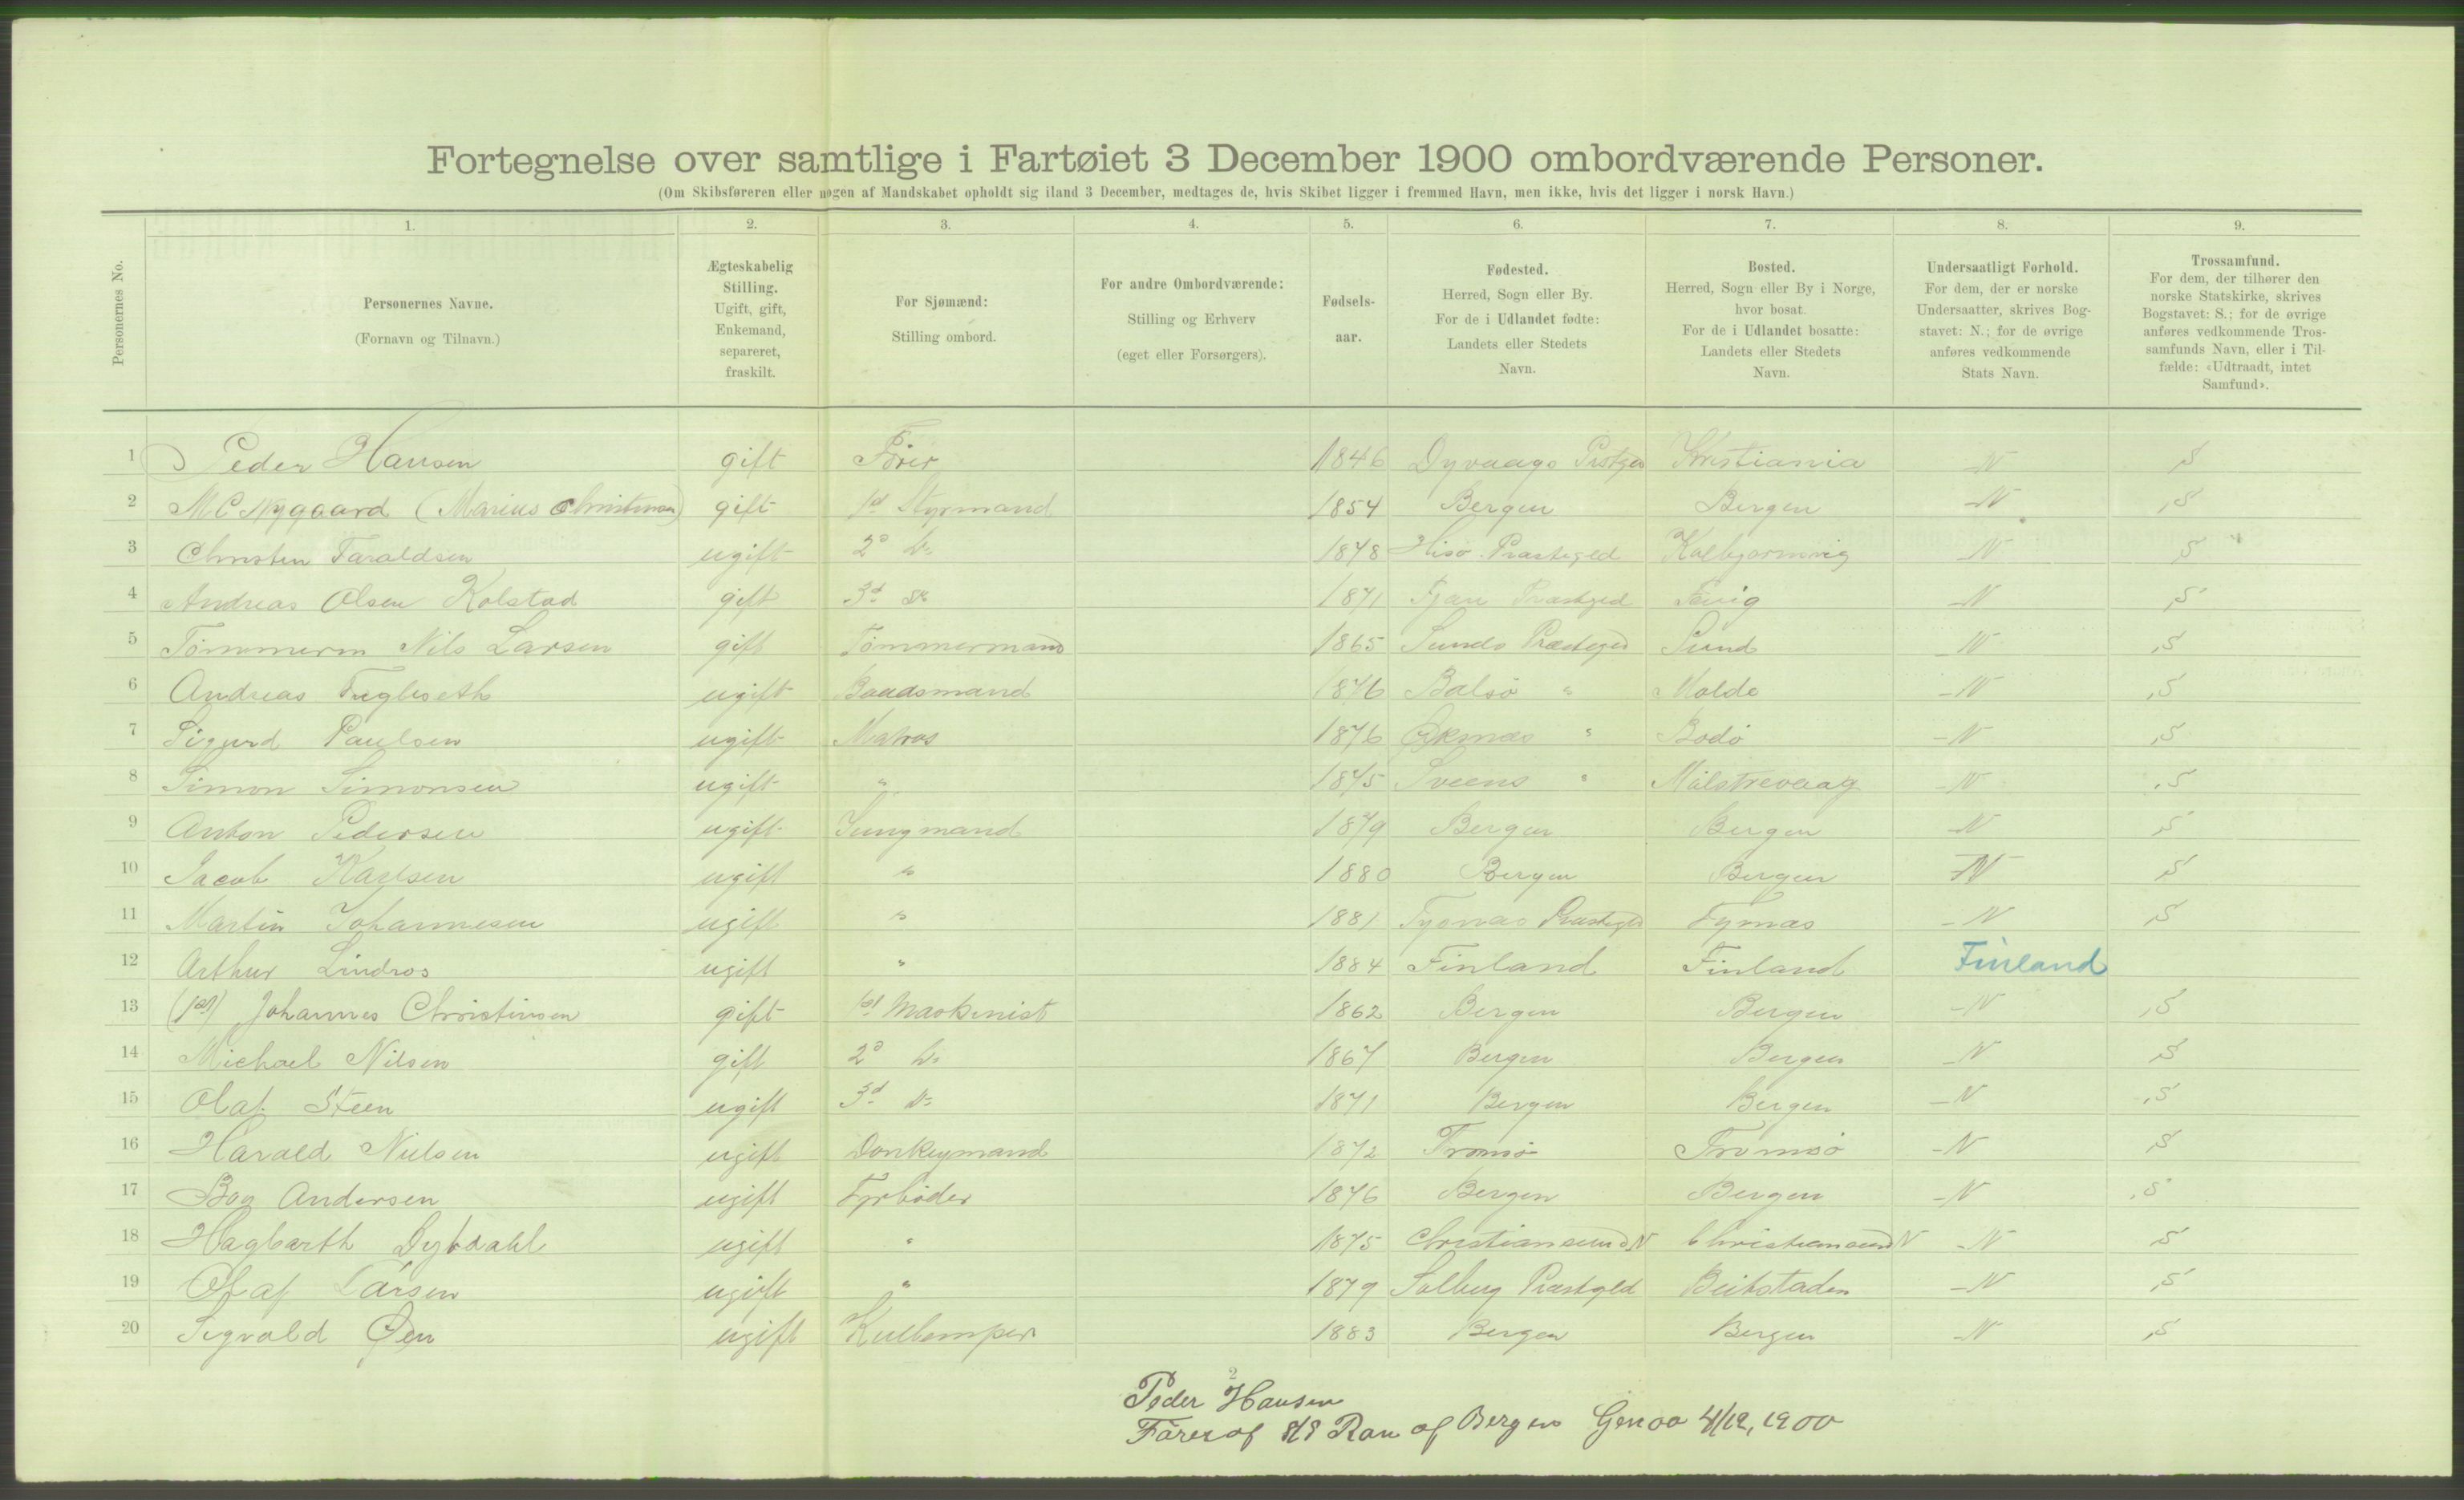 Fortegnelse over samtlige i Fartøiet 3 December 1900 ombordværende Personer.
(Om Skibsføreren eller nogen af Mandskabet opholdt sig iland 3 December, medtages de, hvis Skibet ligger i fremmed Havn, men ikke, hvis det ligger i norsk Havn.)
Personernes No.
1. 2. 3. 4. 5. 6. 7. 8. 9.
Personernes Navne.
(Fornavn og Tilnavn.)
Ægteskabelig
Stilling.
Ugift, gift,
Enkemand,
separeret,
fraskilt.
For Sjømænd:
Stilling ombord.
For andre Ombordværende:
Stilling og Erhverv
(eget eller Forsørgers).
Fødsels-
aar.
Fødested.
Herred, Sogn eller By.
For de i Udlandet fødte:
Landets eller Stedets
Navn.
Bosted.
Herred, Sogn eller By i Norge,
hvor bosat.
For de i Udlandet bosatte:
Landets eller Stedets
Navn.
Undersaatligt Forhold.
For dem, der er norske
Undersaatter, skrives Bog-
stavet: N.; for de øvrige
anføres vedkommende
Stats Navn.
Trossamfund.
For dem, der tilhører den
norske Statskirke, skrives
Bogstavet: S.; for de øvrige
anføres vedkommende Tros-
samfunds Navn, eller i Til-
fælde: «Udtraadt, intet
Samfund».
1 Peder Hansen gift Förer 1846 Dyvaags Kristiania N S
2 M C Nygaard (Marius Christensen) gift 1st Styrmand 1854 Bergen Bergen N S
3 Christen Taraldsen ugift 2d Do 1878 Hisö Præstegjeld Kolbjørnsvig N S
4 Andreas Olsen Kolstad gift 3d Do 1871 Fjære Præstgjed Fevig N S
5 Tömmerm Nils Larsen gift Tömmermand 1865 Sunds Præstegjed Sund N S
6 Andreas Fugleseth ugift Baadsmand 1876 Bolsö " Molde N S
7 Sigurd Paulsen ugift Matros 1876 " Bodö N S
8 Simon Simonsen ugift " 1875 Sveens " Mölstrevaag N S
9 Anton Pedersen ugift Jungmand 1879 Bergen Bergen N S
10 Jacob Karlsen ugift " 1880 Bergen Bergen N S
11 Martin Johannesen ugift " 1881 Tysnæs Præstegjeld Tysnæs N S
12 Arthur Lindros ugift " 1884 Finland Finland Finland
13 (1st) Johannes Christinsen gift 1st Maskinist 1862 Bergen Bergen N S
14 Michael Nilsen gift 2d Do 1867 Bergen Bergen N S
15 Olaf Steen ugift 3d Do 1871 Bergen Bergen N S
16 Harald Nielsen ugift Donkeymand 1872 Tromsö Tromsö N S
17 Andersen ugift Fyrböder 1876 Bergen Bergen N S
18 Hagbarth Dybdahl ugift " 1875 Christiansund N Christiansund N N S
19 Olaf Larsen ugift " 1879 Præstgjeld Beitstaden N S
20 Sigvald Øen ugift Kullemper 1883 Bergen Bergen N S
2
Peder Hansen
Förer af S/S Ran af Bergen Genoa 4/12, 1900